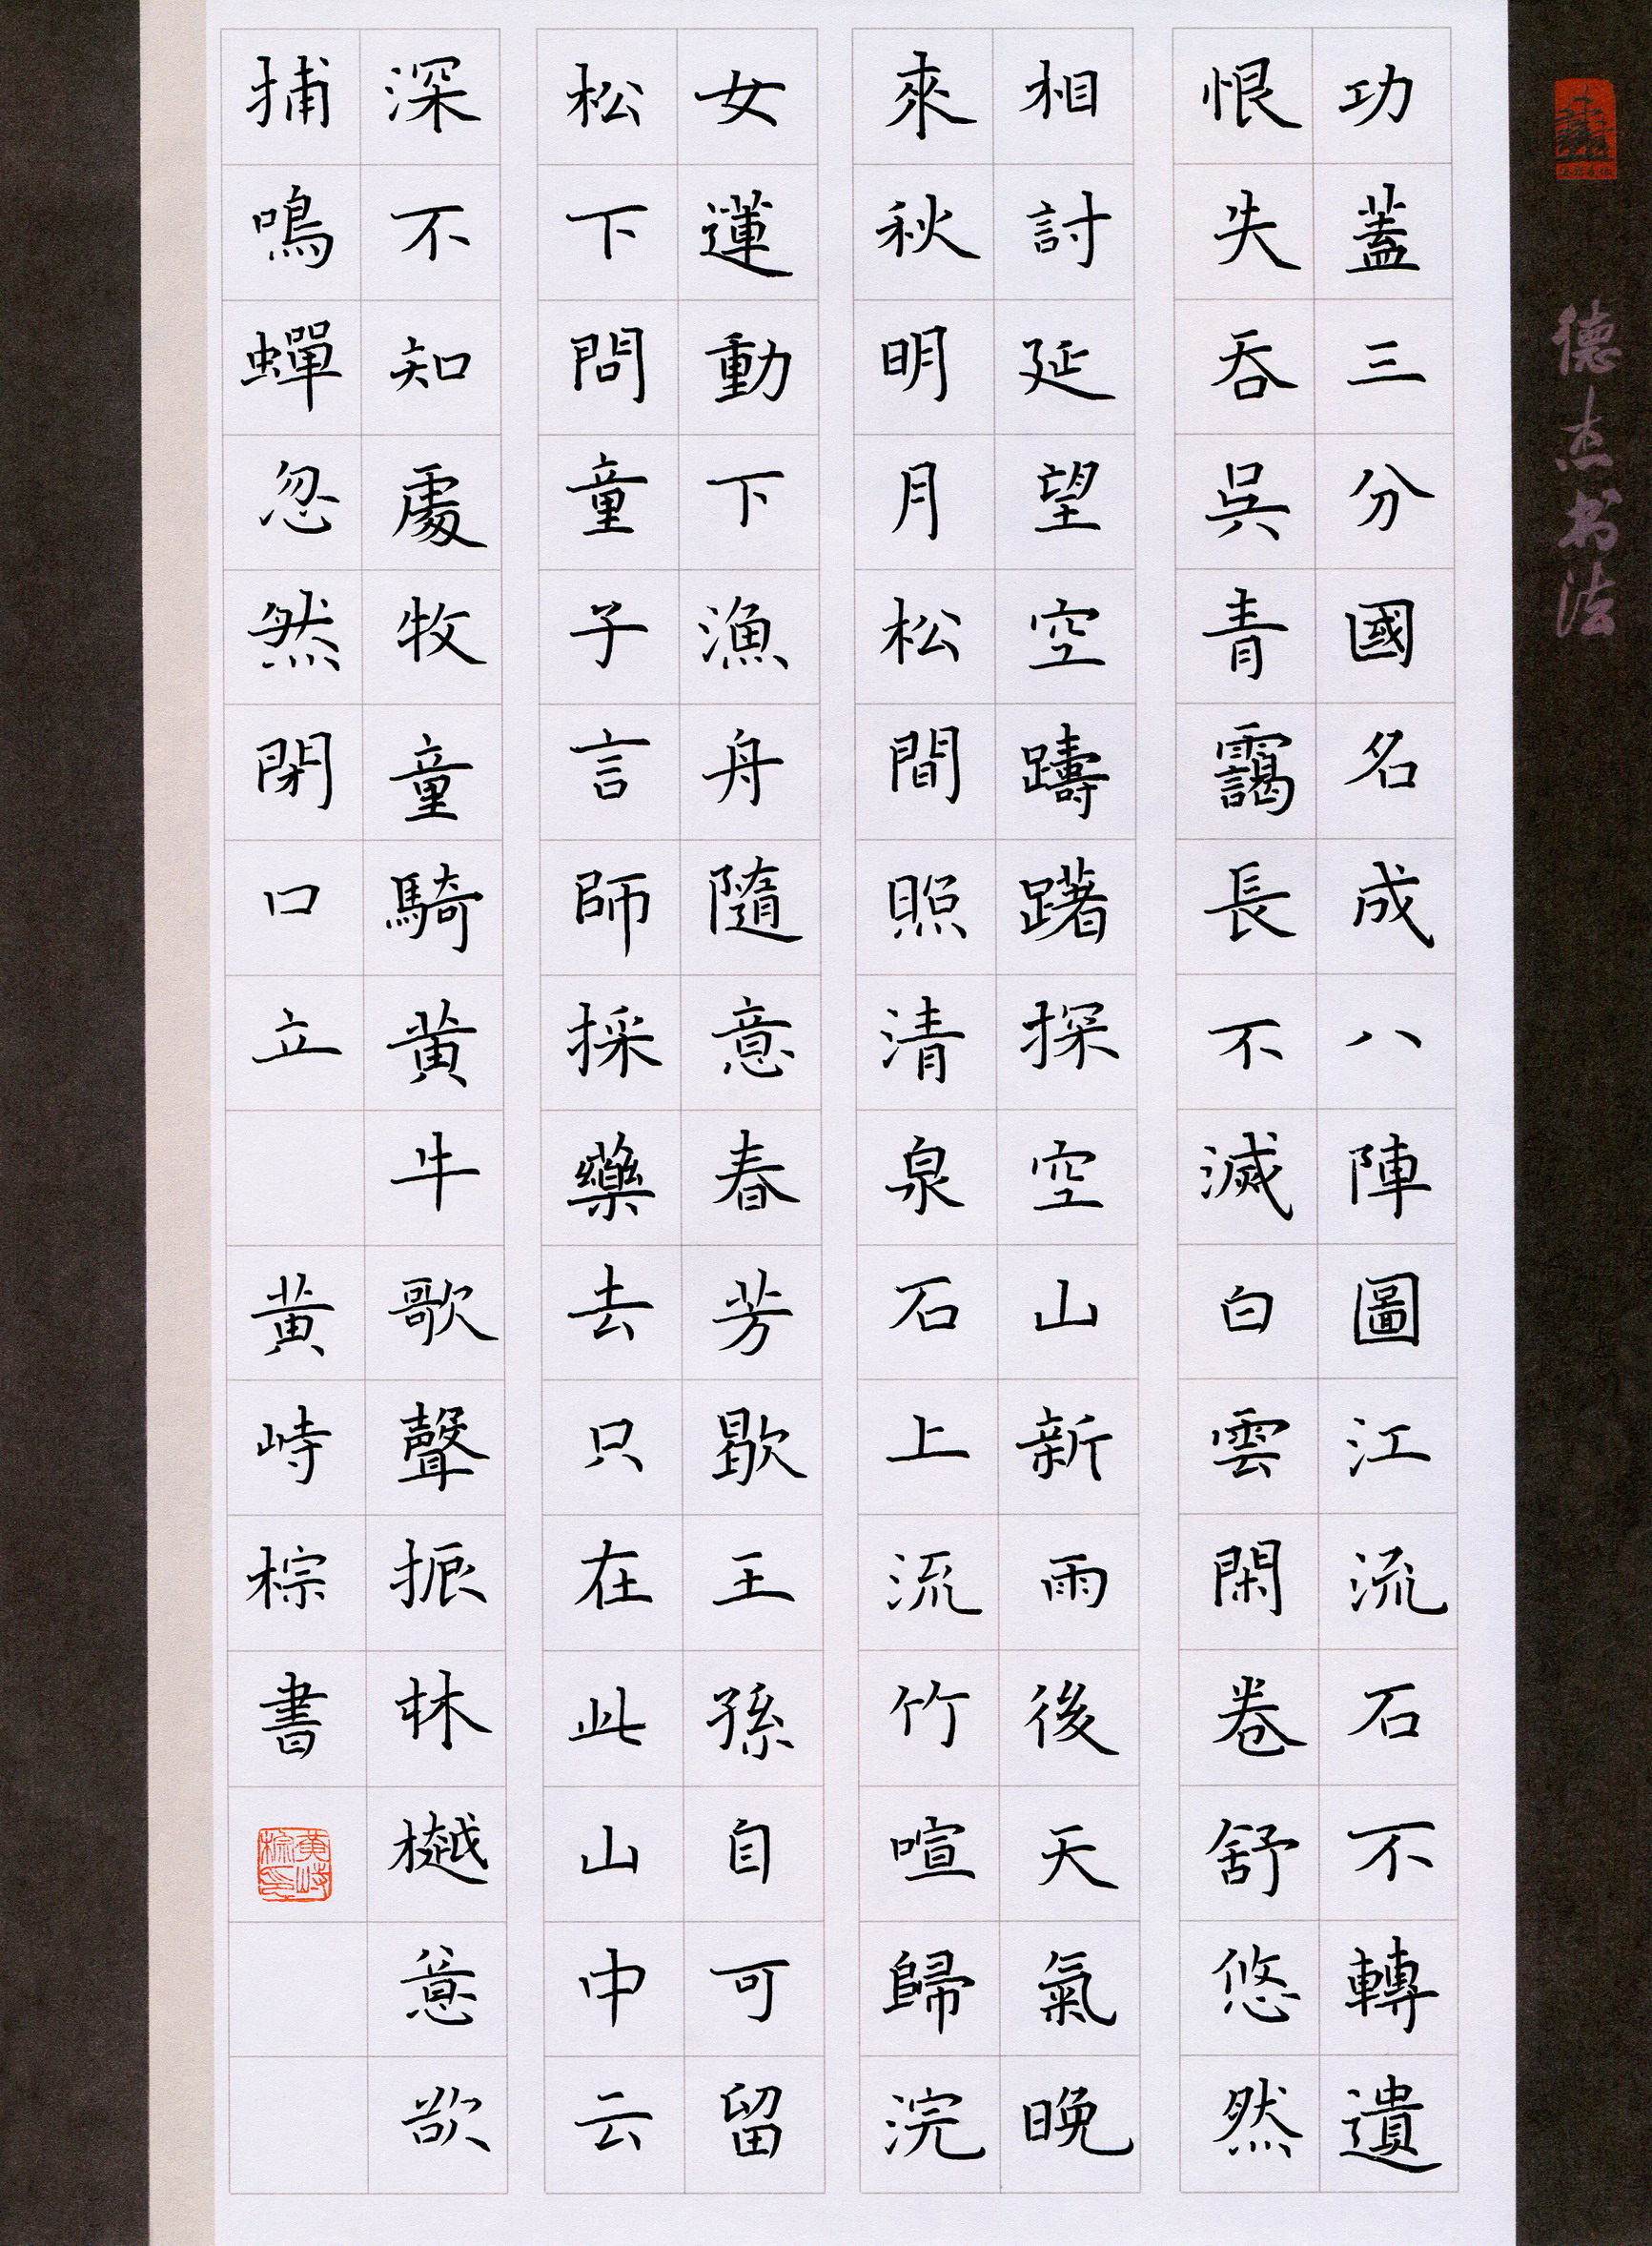 德杰书法
功蓋三分國名成八陣圖江流石不轉遺
恨失吞吳青靄長不滅白雲閑卷舒悠然
相討延望空躊躇探空山新雨後天氣晚
來秋明月松間照清泉石上流竹喧歸浣
女蓮動下漁舟隨意春芳歇王孫自可留
松下問童子言師採藥去只在此山中云
深不知處牧童騎黄牛歌聲振林樾意欲
捕鳴蟬忽然閉口立
黄峙棕書
黄峙棕印